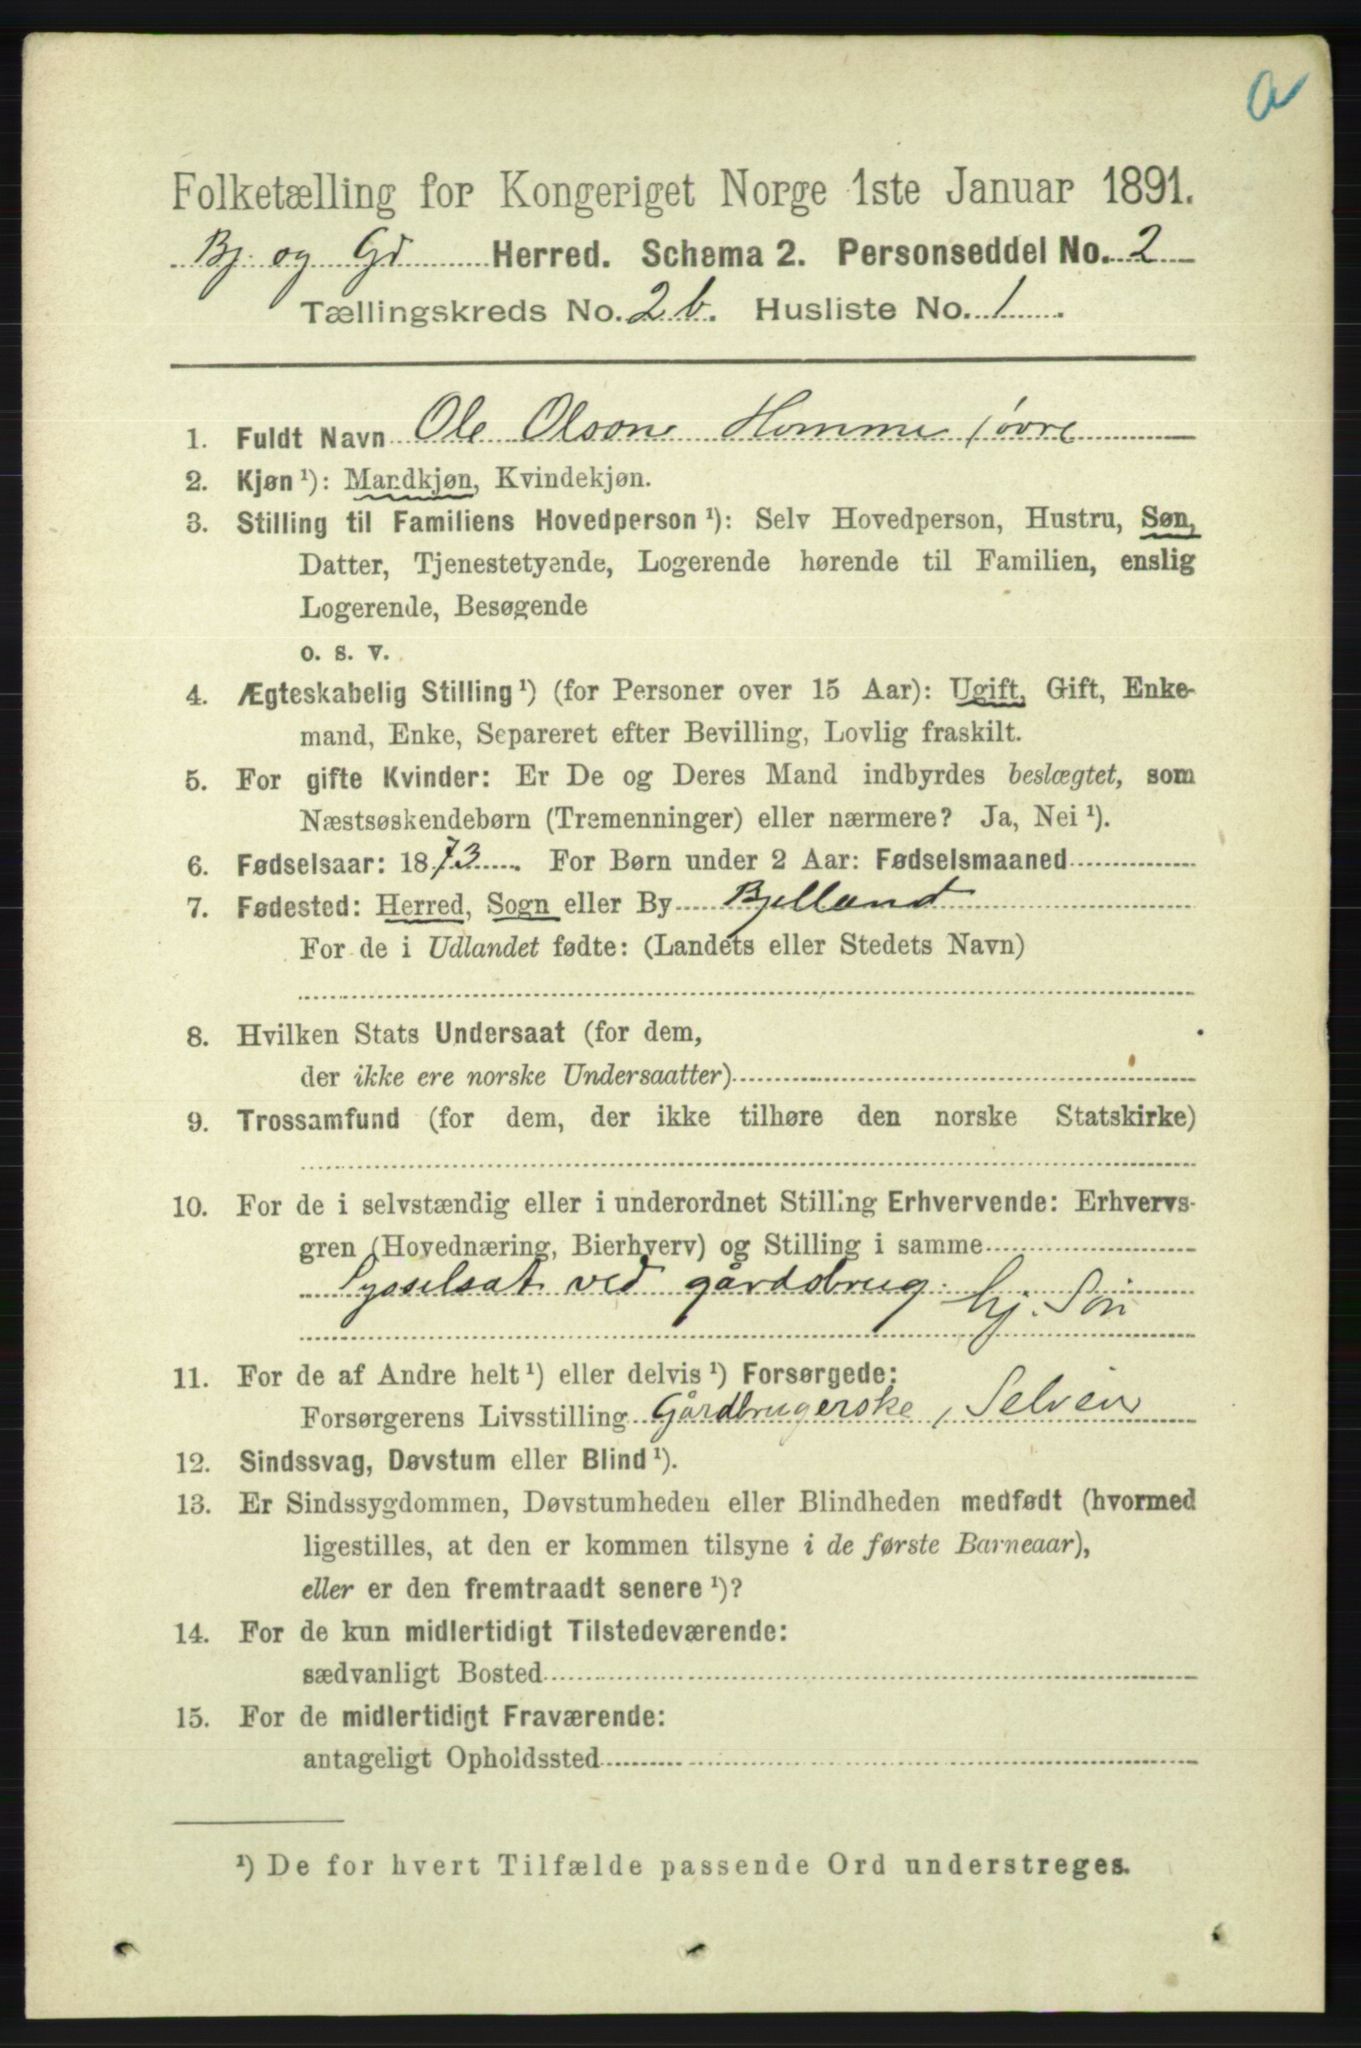 a
Folketælling for Kongeriget Norge 1ste Januar 1891.
Bj. og Gd Herred. Schema 2. Personseddel No. 2
Tællingskreds No. 2 b. Husliste No. 1.
1. Fuldt Navn Ole Olsen Homme, øvre
2. Kjøn ¹): Mandkjøn, Kvindekjøn.
3. Stilling til Familiens Hovedperson ¹): Selv Hovedperson, Hustru, Søn,
Datter, Tjenestetyende, Logerende hørende til Familien, enslig
Logerende, Besøgende
o. s. v.
4. Ægteskabelig Stilling ¹) (for Personer over 15 Aar): Ugift, Gift, Enke-
mand, Enke, Separeret efter Bevilling, Lovlig fraskilt.
5. For gifte Kvinder: Er De og Deres Mand indbyrdes beslægtet, som
Næstsøskendebørn (Tremenninger) eller nærmere? Ja, Nei ¹).
6. Fødselsaar: 1873. For Børn under 2 Aar: Fødselsmaaned
7. Fødested: Herred, Sogn eller By Bjelland
For de i Udlandet fødte: (Landets eller Stedets Navn)
8. Hvilken Stats Undersaat (for dem,
der ikke ere norske Undersaatter)
9. Trossamfund (for dem, der ikke tilhøre den norske Statskirke)
10. For de i selvstændig eller i underordnet Stilling Erhvervende: Erhvervs-
gren (Hovednæring, Bierhverv) og Stilling i samme
Sysselsat ved gårdsbrug. hj. Søn
11. For de af Andre helt ¹) eller delvis ¹) Forsørgede:
Forsørgerens Livsstilling Gårdbrugerske, Selveier
12. Sindssvag, Døvstum eller Blind ¹).
13. Er Sindssygdommen, Døvstumheden eller Blindheden medfødt (hvormed
ligestilles, at den er kommen tilsyne i de første Barneaar),
eller er den fremtraadt senere ¹)?
14. For de kun midlertidigt Tilstedeværende:
sædvanligt Bosted
15. For de midlertidigt Fraværende:
antageligt Opholdssted
¹) De for hvert Tilfælde passende Ord understreges.